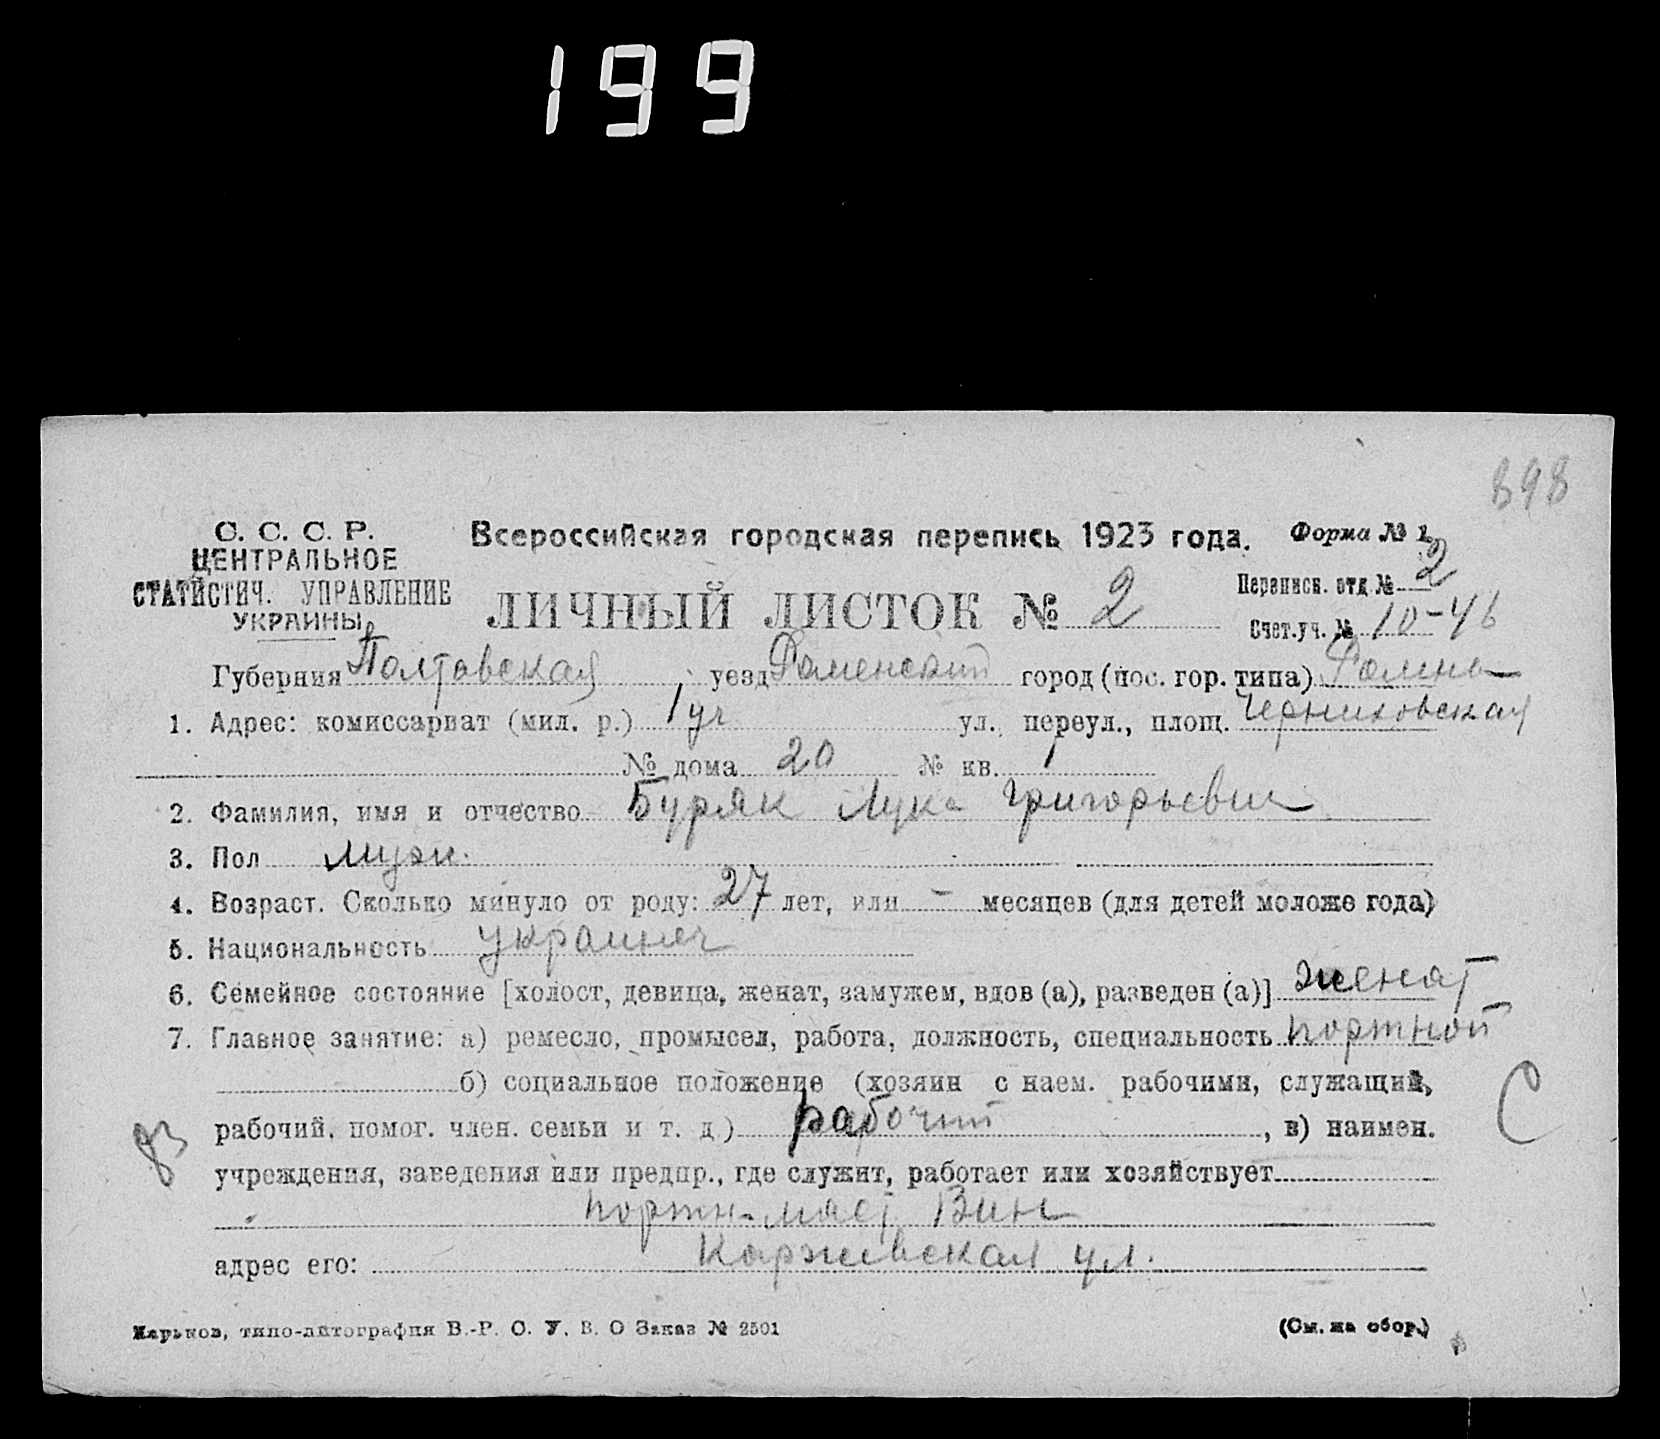 199
898
С. С. С. Р.
ЦЕНТРАЛЬНОЕ
СТАТИСТИЧ. УПРАВЛЕНИЕ
УКРАИНЫ
Всероссийская городская перепись 1923 года.
Форма № 1
ЛИЧНЫЙ ЛИСТОК № 2
Переписн. отд. № 2
Счет.уч. № 10-46
Губерния Полтавская уезд Роменский город (пос. гор. типа) Ромны
1. Адрес: комиссариат (мил. р.) 1 уч ул., переул., площ. Черниховская
№ дома 20 № кв. 1
2. Фамилия, имя и отчество Буряк Лука Григорьевич
3. Пол муж.
4. Возраст. Сколько минуло от роду: 27 лет, или - месяцев (для детей моложе года)
5. Национальность украинец
6. Семейное состояние [холост, девица, женат, замужем, вдов (а), разведен (а)] женат
7. Главное занятие: а) ремесло, промысел, работа, должность, специальность портной
б) социальное положение (хозяин с наем. рабочими, служащий,
рабочий, помог. член. семьи и т. д) рабочий, в) наимен.
учреждения, заведения или предпр., где служит, работает или хозяйствует
портн. маст
адрес его: Коржевская ул.
83
С
Харьков, типо-литография В.-Р. С. У. В. О Заказ № 2501
(См. на обор.)